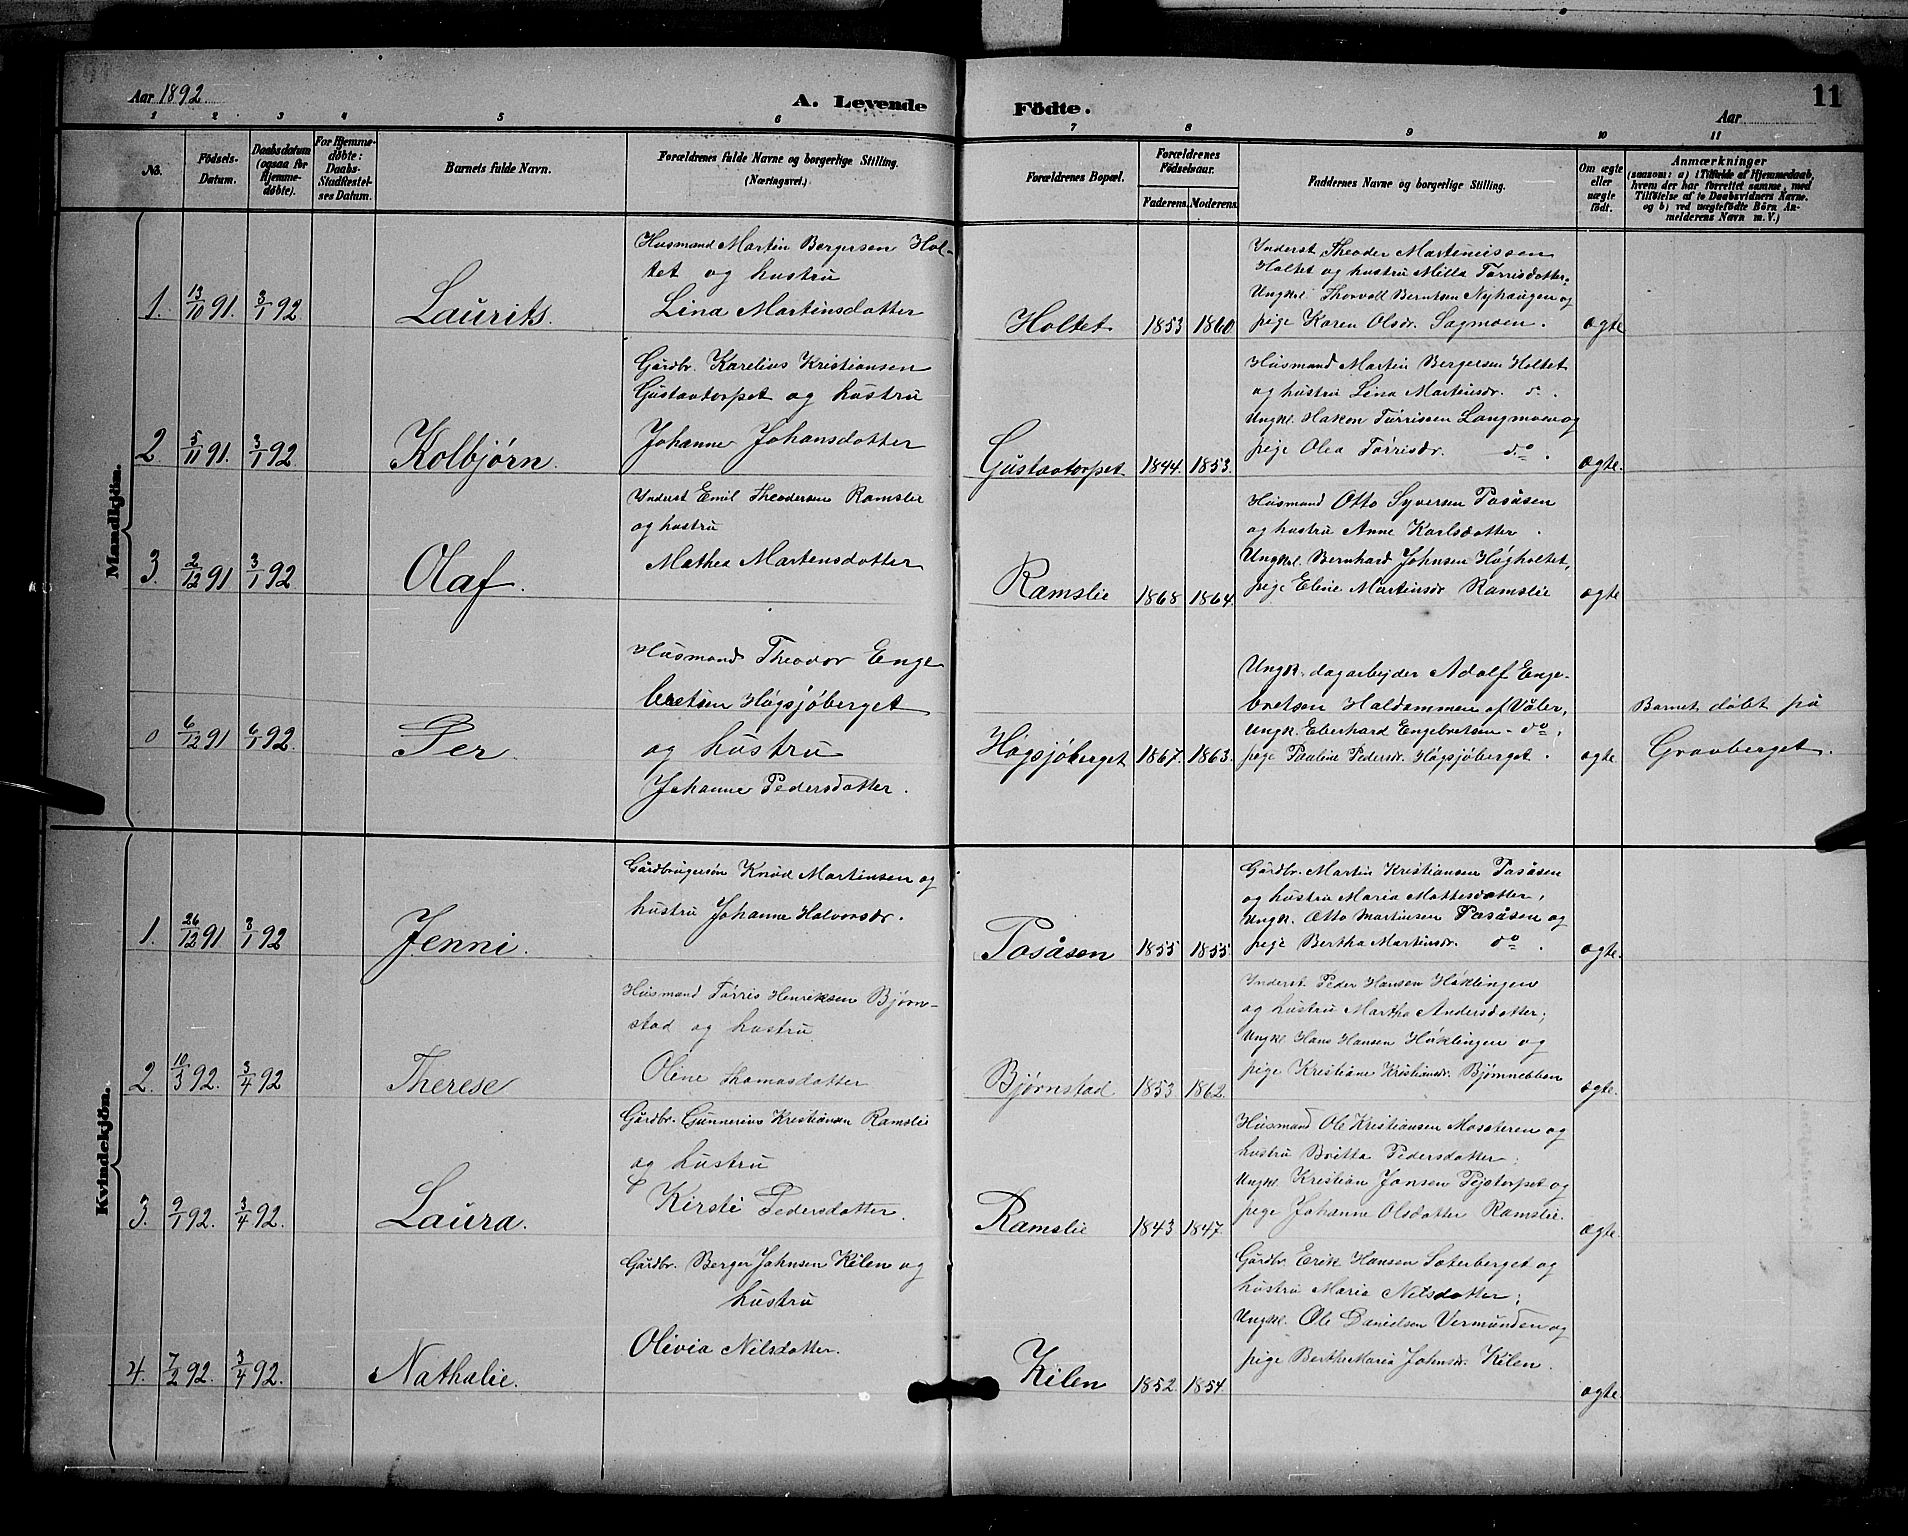 11
Aar 1892
A. Levende Födte.
Aar
1 2 3 4 5 6 7 8 9 10 11
No.
Födsels-
Datum.
Daabsdatum
(ogsaa for
Hjemme-
döbte).
For Hjemme-
döbte:
Daabs-
Stadfæstel-
ses Datum.
Barnets fulde Navn.
Forældrenes fulde Navne og borgerlige Stilling.
(Næringsvei.)
Forældrenes Bopæl.
Forældrenes
Födselsaar.
Faderens. Moderens.
Faddernes Navne og borgerlige Stilling.
Om ægte
eller
uægte
födt.
Anmærkninger
(saasom: a) i Tilfælde af Hjemmedaab,
hvem der har forrettet samme, med
Tilföielse af to Daabsvidners Navne.
og b) ved uægtefödte Börn An-
melderens Navn m. V.)
Mandkjön.
1. 13/10 91. 3/1 92 Laurits.
Husmand Martin Bergersen Hol-
tet og hustru
Lina Martinsdatter
Holtet 1853 1860
Inderst Theodor Martinussen
Holtet og hustru Milla Tørrisdatter;
Ungkl. Thorvall Berntsen Nyhaugen og
pige Karen Olsdr. Sagmoen.
ægte
2 5/11 91. 3/1 92 Kolbjørn.
Gårdbr. Karelius Kristiansen
Gustavtorpet og hustru
Johanne Johansdatter
Gustavtorpet 1844. 1853.
Husmand Martin Bergersen Holtet
og hustru Lina Martinsdr. do.
Ungkl. Hakon Tørrissen Langmoen og
pige Olea Tørrisdr. do.
ægte.
3. 2/12 91 3/1 92 Olaf.
Inderst Emil Theodersen Ramslie
og hustru
Mathea Martinsdatter
Ramslie 1868 1864.
Husmand Otto Syversen Posåsen
og hustru Anne Karlsdatter.
Ungkl. Bernhard Johnsen Høgholtet,
pige Eline Martinsdr Ramslie
ægte
0 6/12 91 6/1 92. Per.
Husmand Theodor Enge
bretsen Høgsjøberget
og hustru
Johanne Pedersdatter.
Høgsjøberget 1867. 1863.
Ungk. dagarbejder Adolf Enge-
bretsen Haldammen af Våler,
Ungk. Eberhard Engebretsen do,
pige Pauline Pedersdr. Høgsjøberget.
ægte
Barnet døbt på
Gravberget.
Kvindekjön.
1. 26/12 91 3/1 92 Jenni.
Gårdbrugersøn Knud Martinsen og
hustru Johanne Halvorsdr.
Posåsen 1855 1855.
Gårdbr. Martin Kristiansen Posåsen
og hustru Maria Mattesdatter,
Ungk. Otto Martinsen Posåsen og
pige Bertha Martinsdr. do.
ægte.
2. 10/3 92. 3/4 92 Therese
Husmand Tørris Henriksen Bjørn-
stad og hustru
Oline Thomasdatter
Bjørnstad 1853 1862.
Inderst. Peder Hansen Høklingen
og hustru Martha Andersdatter;
Ungkl Hans Hansen Høklingen og
pige Kristiane Kristiansdr. Bjørnnebben
ægte.
3. 9/1 92. 3/4 92. Laura.
Gårdbr. Gunnerius Kristiansen Ramslie
og hustru
Kirsti Pedersdatter.
Ramslie 1843 1847.
Husmand Ole Kristiansen Mosæteren og
hustru Britta Pedersdatter;
Ungkl. Kristian Jansen Pejstorpet og
pige Johanne Olsdatter Ramslie.
ægte.
4. 7/2 92. 3/4 92. Nathalie.
Gårdbr. Berger Johnsen Kilen og
hustru
Olivia Nilsdatter.
Kilen 1852. 1854.
Gårdbr. Erik Hansen Sæterberget og
hustru Maria Nilsdatter;
Ungkl. Ole Danielsen Vermunden og
pige Berthe Maria Johnsdr. Kilen.
ægte.